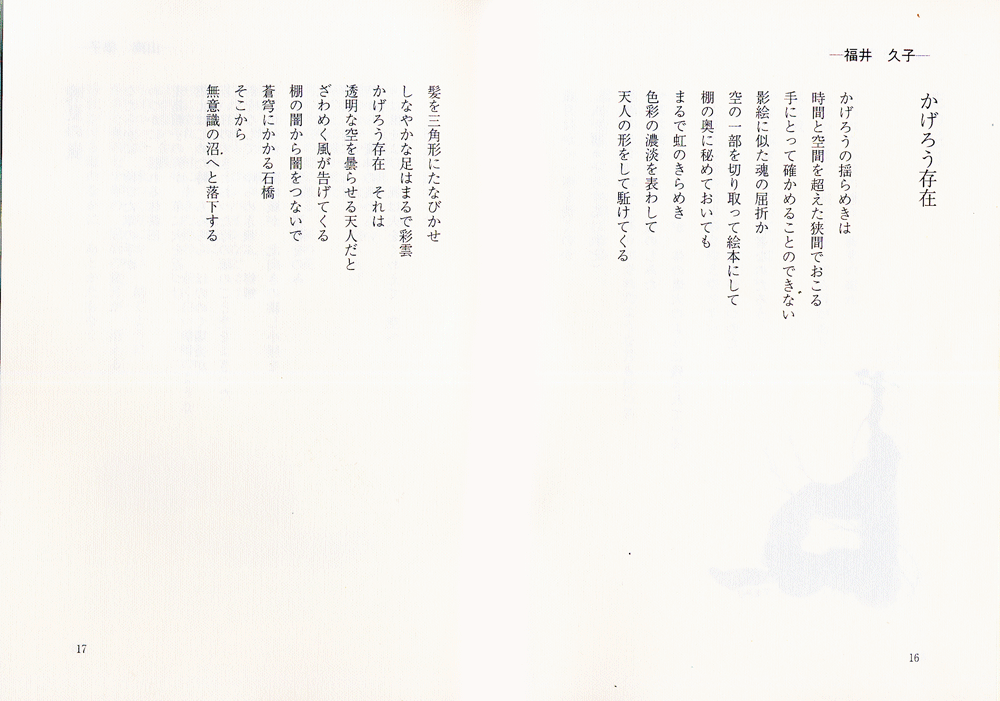 ―福井　久子―
かげろう存在
かげろうの揺らめきは
時間と空間を超えた狭間でおこる
手にとって確かめることのできない
影絵に似た魂の屈折か
空の一部を切り取って絵本にして
棚の奥に秘めておいても
まるで虹のきらめき
色彩の濃淡を表わして
天人の形をして駈けてくる
16
髪を三角形にたなびかせ
しなやかな足はまるで彩雲
かげろう存在　それは
透明な空を曇らせる天人だと
ざわめく風が告げてくる
棚の闇から闇をつないで
蒼穹にかかる石橋
そこから
無意識の沼へと落下する
17